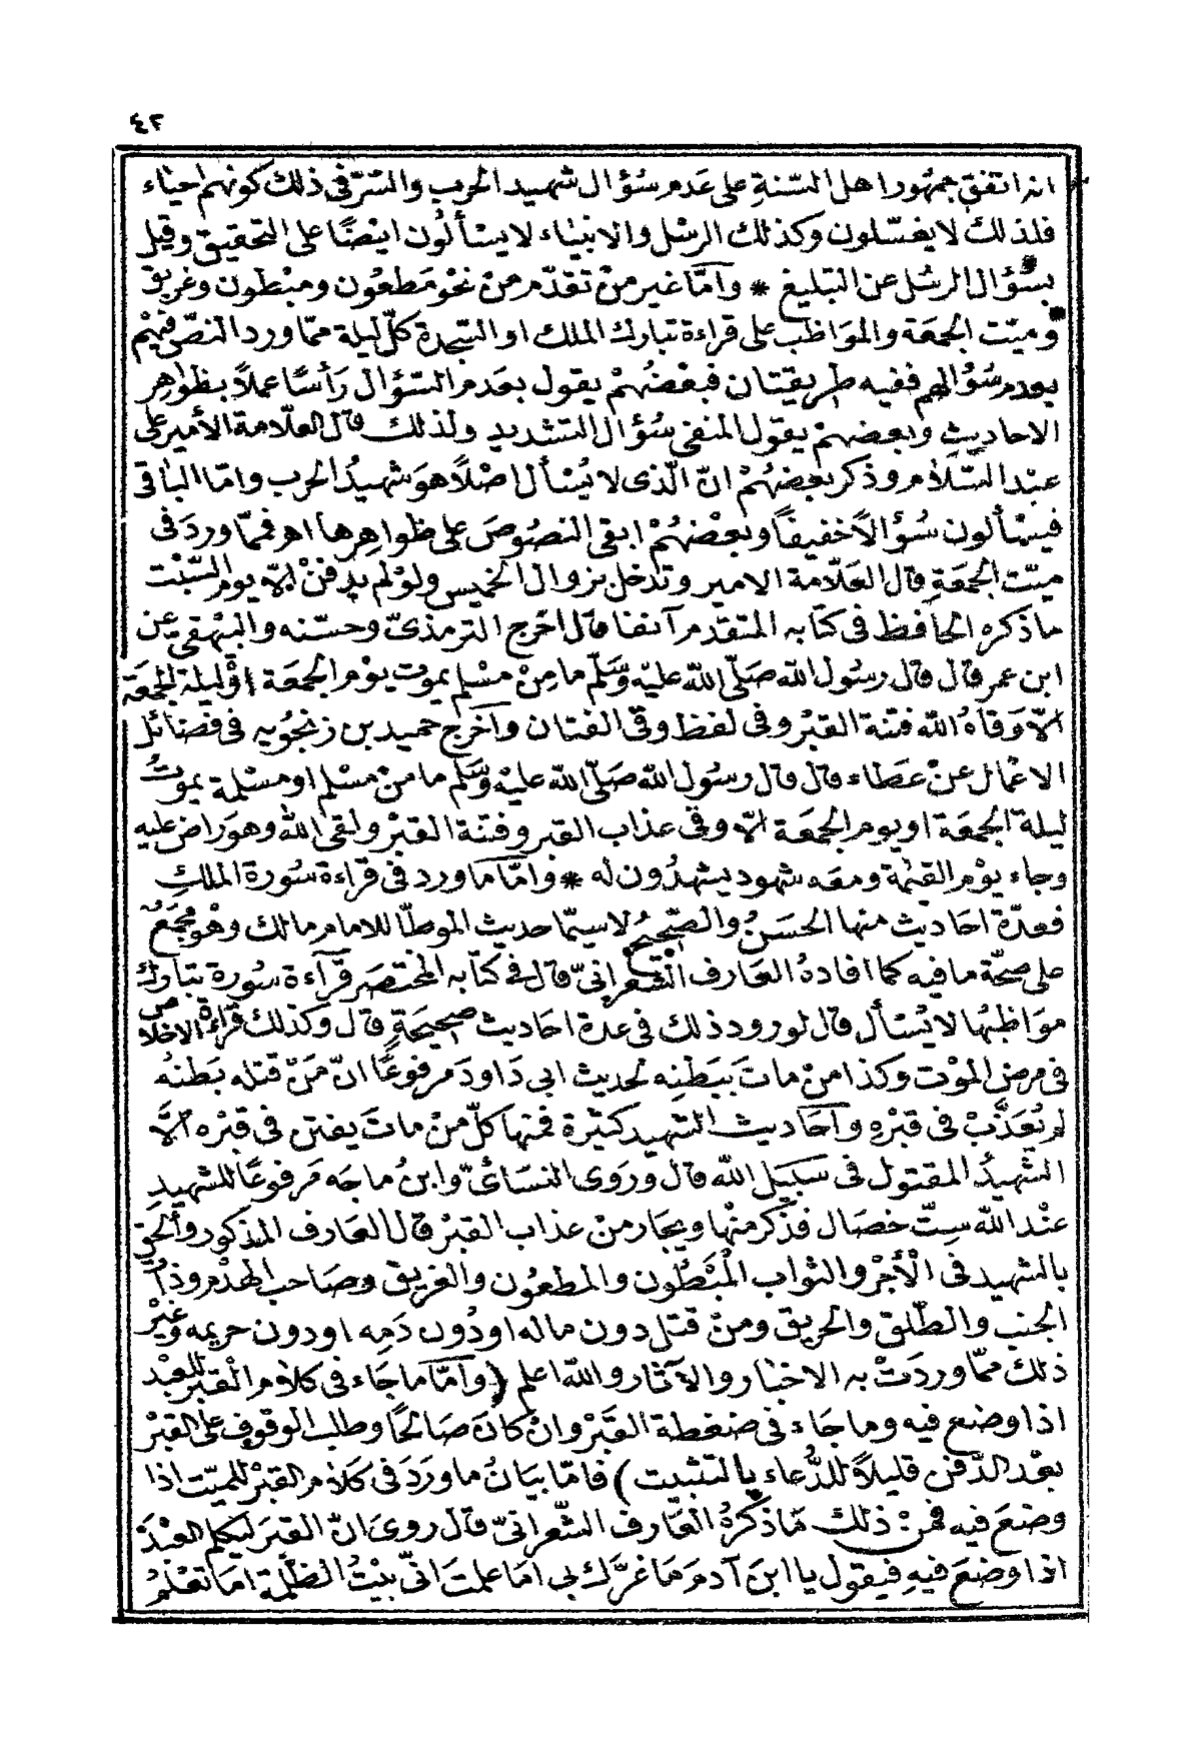 ٤٢
انه اتفق جمهور اهل السّنةِ على عَدم سُؤال شهيد الحرب والسّرّ فى ذلك كونهم احياء
فلذلك لا يغسّلون وكذلك الرسُل والانبياء لا يسْألون ايضًا على التحقيق وقيل
بسُؤال الرسُل عن التبليغ * وامّا غير منْ تقدّم منْ نحو مَطعُون ومبْطون وغريق
وميّت الجمعَة والموَاظب على قراءة تبارك الملك او السّجدة كلّ ليلة ممّا ورد النصّ فيهمْ
بعدم سُؤالهم ففيه طريقتان فبعْضُهمْ يقول بعَدم السّؤال رَأسًا عملاً بظواهِر
الاحاديثِ وبعضهمْ يقول المنفى سُؤال التشديد ولذلك قال العلّامة الأمير على
عبْد السّلام وذكر بعضهُمْ انّ الّذى لا يُسْأل اصْلاً هوَ شهيدُ الحرب وامّا الباقى
فيسْألون سُؤالاً خفيفاً وبعْضهُمْ ابقى النصُوصَ على ظواهِرها اهـ فمّا وردَ فى
ميّت الجمعَةِ قال العَلّامة الامير وتدخل بزوال الخميس ولوْ لم يدفنْ الّا يوم السّبْت
ما ذكره الحَافظ فى كتابه المتقدم آنفا قال اخرج الترمذىّ وحسّنه والبيْهقىّ عن
ابن عمر قال قال رسُول الله صَلّى الله عليهْ وَسَلّم ما مِنْ مسْلم يموت يوْم الجمعَة اوْ ليلة الجمعَة
الّا وَقاهُ الله فتنة القبْر وفى لفظ وقى الفتان واخرج حميد بن زنجُويه فى فضَائل
الاعْمال عنْ عطاء قال قال رسول الله صَلّى الله عليْه وَسَلّم ما منْ مسْلم او مسْلمة يموتُ
ليلةَ الجمعَة او يوم الجمعَة الّا وقى عذاب القبر وفتنة القبْر ولقى الله وهوَ راض عليه
وجاء يوْم القيٰمة ومعَه شهود يشهدُون له * وامّا ما ورد فى قراءة سُورة الملك
فعدّة احَاديث منها الحسَنُ والصّحيحُ لاسيّما حديث الموطّا للامام مالك وهْو مجمَعٌ
على صحّة ما فيه كما افادهُ العَارف الشعْرانىّ قال فى كتابه المختصَر قرآءة سُورة تبارك
موَاظبهُا لا يُسْأل قال لورود ذلك فى عدة احَاديث صحيحَةٍ قال وكذلك قراءة الاخلاص
فى مرض الموْت وكذا من ماتَ ببَطنِه لحديث ابى دَاودَ مرفوعًا انّ مَنْ قتله بَطنهُ
لم يُعَذّبْ فى قبْرهِ واحَاديث الشهيد كثيرة فمنها كلّ منْ ماتَ يفتن فى قبْره الّا
الشّهيدُ المقتول فى سَبيل الله قال ورَوى النسَائىّ وابنُ ماجَه مَرفوعًا للشهيدِ
عنْد الله ستّ خصَال فذكر منْها ويجار منْ عذاب القبْر قال العَارف المذكور وألحق
بالشهيد فى الْأجْر والثواب المْبَطُون والمطعُون والغريق وصَاحب الهدْم وذاتُ
الجنب والطّلق والحريق ومنْ قتل دون ماله اودُون دَمِه اودون حريمه وغيْر
ذلك ممّا وردَتْ به الاخبَار والآثار والله اعلم (وامّا ما جَاء فى كلام الْقبر للعَبْد
اذا وضع فيه وما جَاء فى ضغطة القبْر وانْ كانَ صَالحًا وطلب الوقوف على القبْر
بعْد الدّفن قليلاً للدُّعاء بالتثبيت) فامّا بيَانُ ما ورَدَ فى كلام القبْر للميّت اذا
وضعَ فيه فمنْ ذلك مَا ذكرهُ العَارف الشّعرانىّ قال روىَ انّ القبرَ ليكلم العَبْدَ
اذا وضعَ فيهِ فيقول يا ابنَ آدمَ مَا غرّك بى امَا علمتَ انّى بيْتُ الظلْمة امَا تعْلمُ